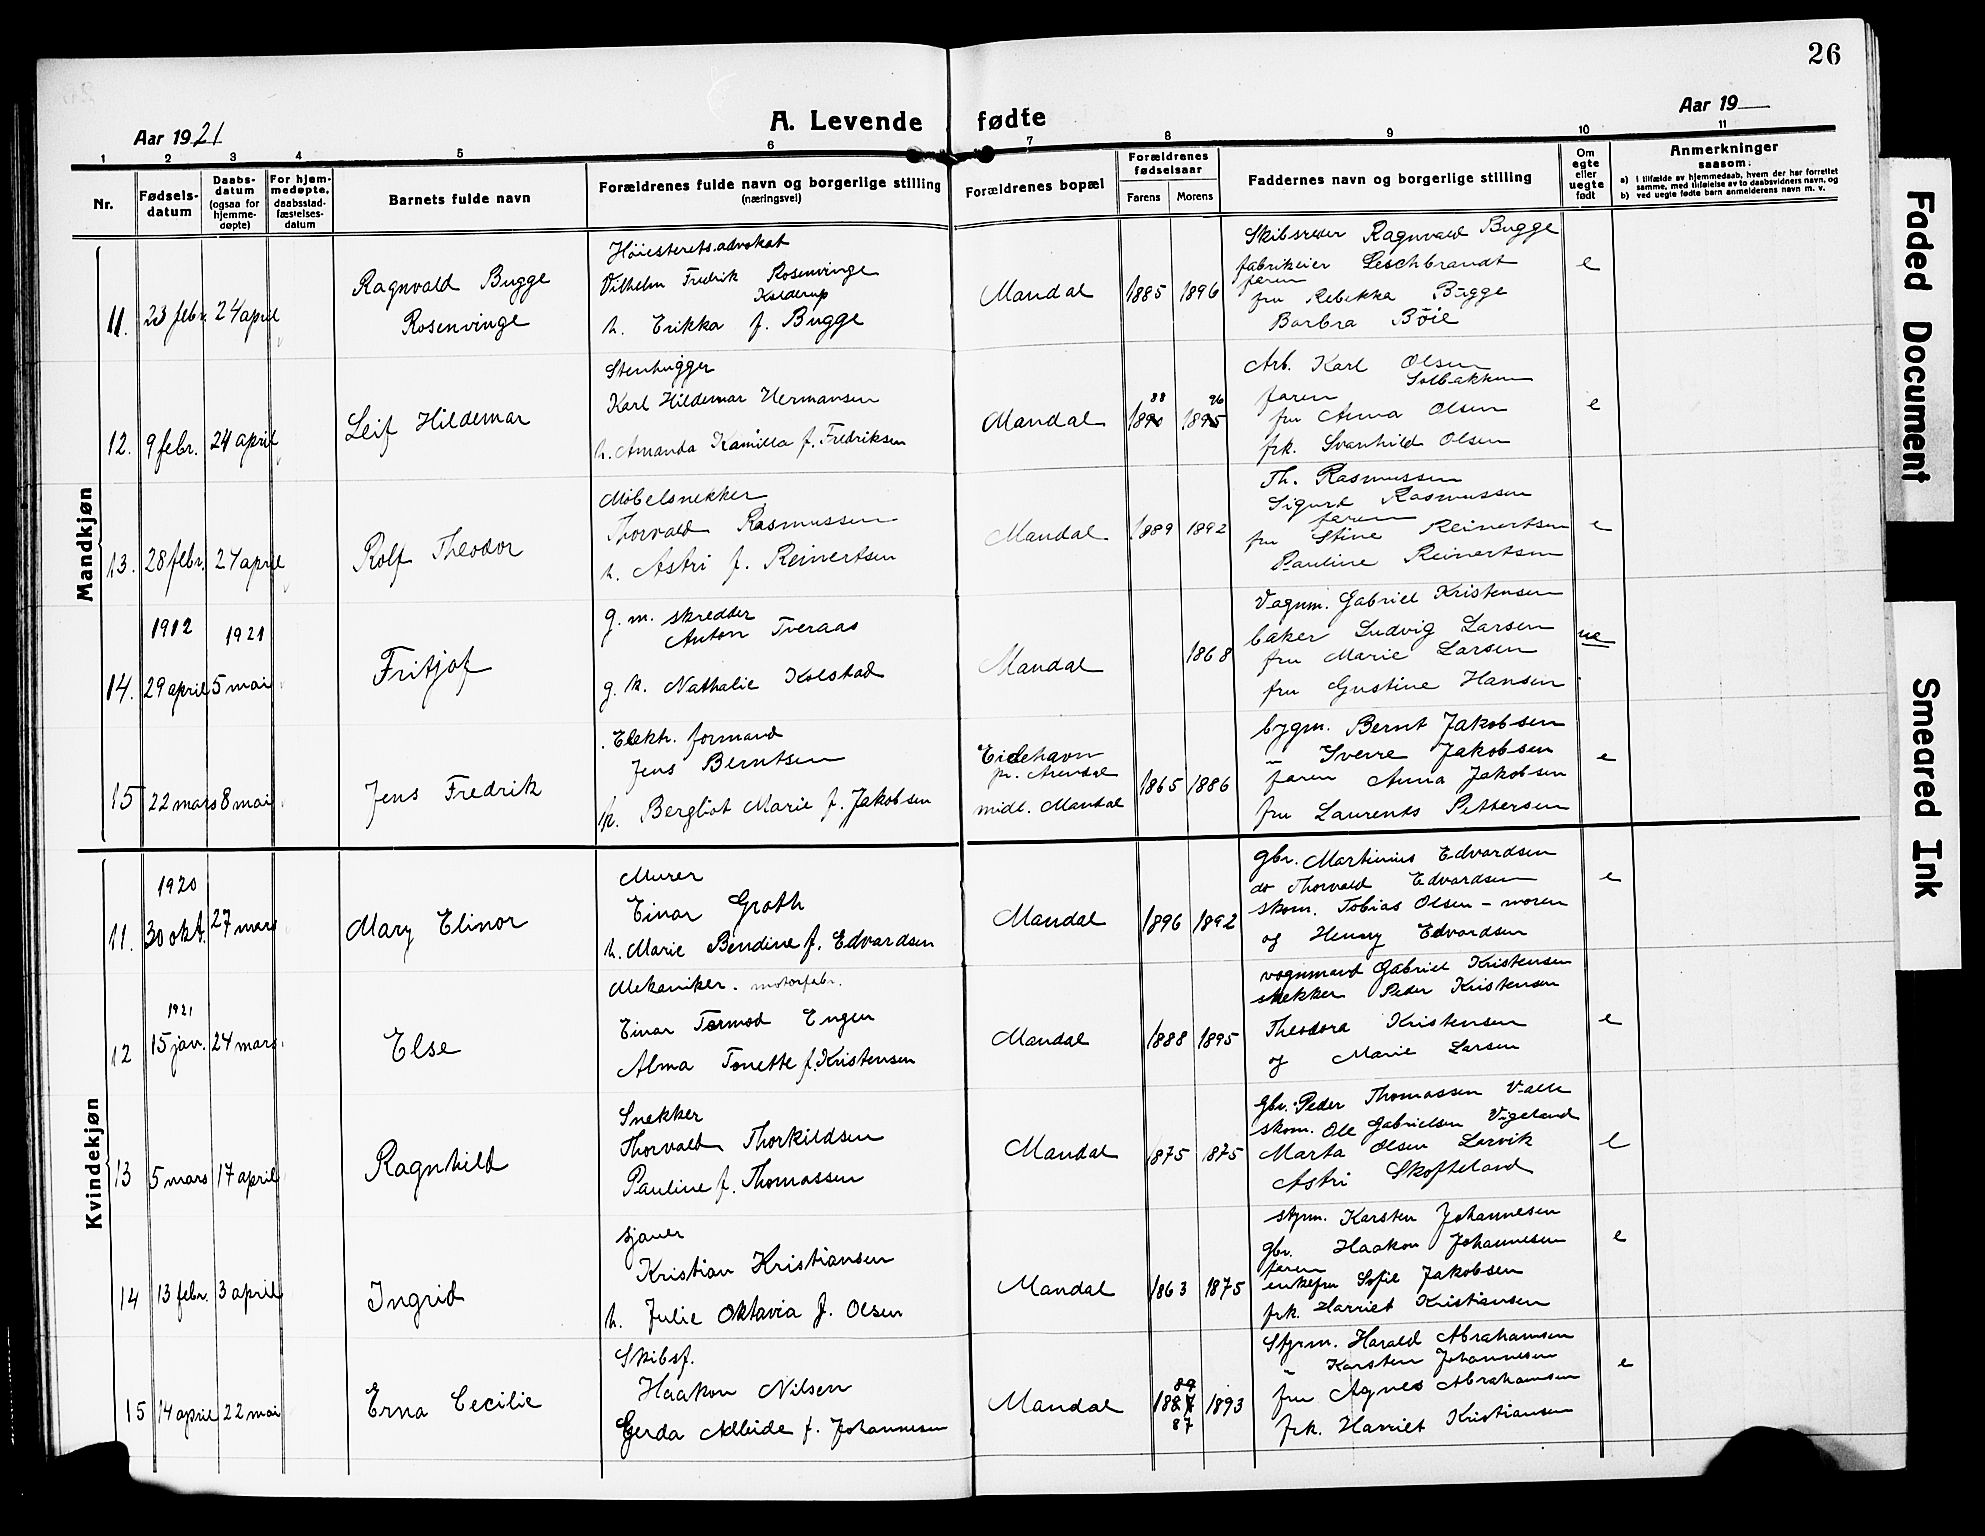 26
A. Levende fødte
Aar 1921
Aar 19
1 2 3 4 5 6 7 8 9 10 11
Nr.
Fødsels-
datum
Daabs-
datum
(ogsaa for
hjemme-
døpte)
For hjem-
medøpte,
daabsstad-
fæstelses-
datum
Barnets fulde navn
Forældrenes fulde navn og borgerlige stilling
(næringsvei)
Forældrenes bopæl
Forældrenes
fødselsaar
Farens Morens
Faddernes navn og borgerlige stilling
Om
egte
eller
uegte
født
Anmerkninger
saasom:
a) i tilfælde av hjemmedaab, hvem der har forrettet
samme, med tilføielse av to daabsvidners navn, og
b) ved uegte fødte barn anmelderens navn m. v.
Mandkjøn
11. 23 febr. 24 april
Ragnvald Bugge
Rosenvinge
Høiesteretsadvokat
Vilhelm Fredrik Rosenvinge
Kolderup
h. Erikka f. Bugge
Mandal 1885 1896
Skibsreder Ragnvald Bugge
fabrikeier Leschbrandt
faren
fru Rebekka Bugge
Borbra Bøie
e
12. 9 febr. 24 april
Leif Hildemar
Stenhugger
Karl Hildemar Hermansen
h. Amanda Kamilla f. Fredriksen
Mandal
88 96
1890 1895
Arb. Karl Olsen
Solbakken
faren
fru Anna Olsen
frk. Svanhild Olsen
e
13. 28 febr. 24 april
Rolf Theodor
Møbelsnekker
Thorvald Rasmussen
h. Astri f. Reinertsen
Mandal 1889 1892
Th. Rasmussen
Sigurd Rasmussen
faren
fru Stine Reinertsen
Pauline Reinertsen
e
1912 1921
14. 29 april 5 mai
Fritjof
g. m. skredder
Anton Tveraas
g. k. Nathalie Kolstad
Mandal 1868
Vognm. Gabriel Kristensen
baker Ludvig Larsen
fru Marie Larsen
fru Gustine Hansen
ue
15 22 mars 8 mai
Jens Fredrik
Elektr. formand
Jens Berntsen
h. Bergliot Marie f. Jakobsen
Eidehavn
pr. Arendal
midl. Mandal
1865 1886
bygm. Bernt Jakobsen
" Sverre Jakobsen
faren Anna Jakobsen
fru Laurents Pettersen
e
Kvindekjøn
1920
11. 30 okt. 27 mars
Mary Elinor
Murer
Einar Groth
h. Marie Bendine f. Edvardsen
Mandal 1896 1892
gbr. Martinius Edvardsen
do Thorvald Edvardsen
skom. Tobias Olsen - moren
og Henny Edvardsen
e
1921
12 15 jan. 24 mars
Else
Mekaniker. motorfabr.
Einar Tormod Engen
Alma Tonette f. Kristensen
Mandal 1888 1895
vognmand Gabriel Kristensen
snekker Peder Kristensen
Theodora Kristensen
og Marie Larsen
e
13 5 mars 17 april
Ragnhild
Snekker
Thorvald Thorkildsen
Pauline f. Thomassen
Mandal 1875 1875
Gbr. Peder Thomassen Valle
skom. Ole Gabrielsen Vigeland
Marta Olsen Larvik
Astri Skofteland
e
14 13 febr. 3 april
Ingrid
sjauer
Kristian Kristiansen
h. Julie Oktavia f. Olsen
Mandal 1863 1875
styrm. Karsten Johannesen
gbr. Haakon Johannesen
faren
enkefru Sofie Jakobsen
frk. Harriet Kristiansen
e
15 14 april 22 mai
Erna Cecilie
Skibsf.
Haakon Nilsen
Gerda Adleide f. Johannesen
Mandal
1887 1893
87
Styrm. Harald Abrahamsen
" Karsten Johannesen
fru Agnes Abrahamsen
frk. Harriet Kristiansen
e
Faded Document
Smeared Ink